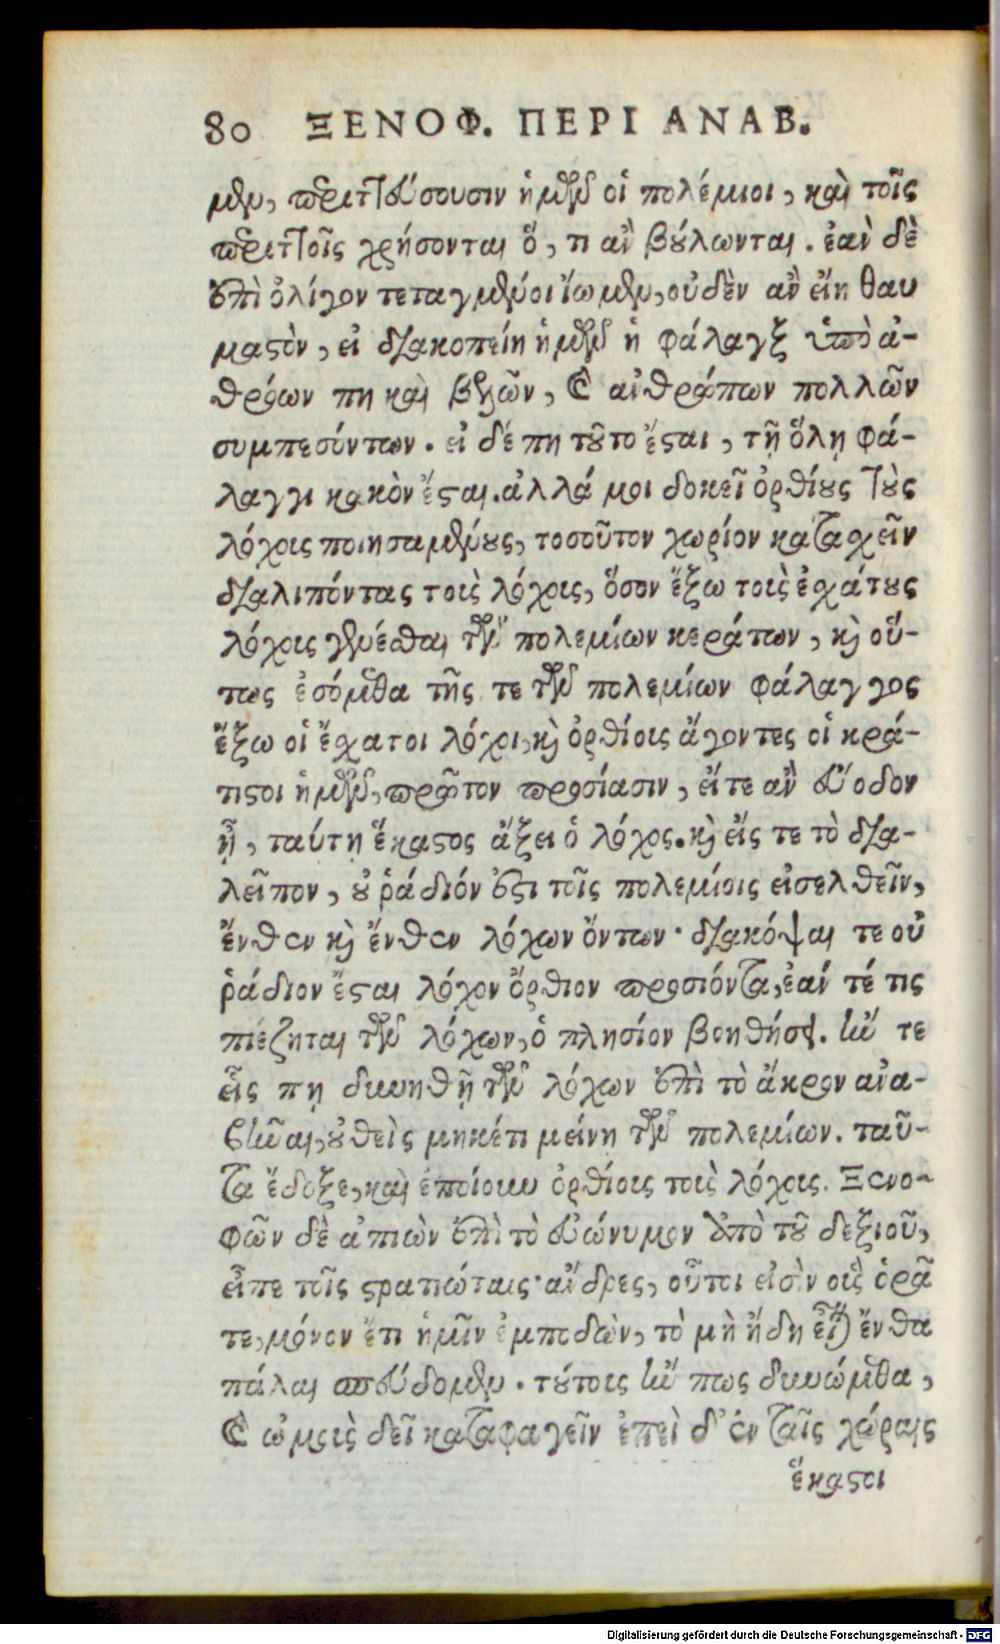 80 ΞΕΝΟΦ. ΠΕΡΙ ΑΝΑΒ.
μεν, περιττεύσουσιν ἡμῶν οἱ πολέμιοι, καὶ τοῖς
περιττοῖς χρήσονται ὅ, τι ἂν βούλωνται. ἐὰν δὲ
ἐπὶ ὀλίγον τεταγμένοι ἴωμεν, οὐδὲν ἂν εἴη θαυ
μαστὸν, εἰ διακοπείη ἡμῶν ἡ φάλαγξ ὑπὸ ἀ-
θρόων πη καὶ βελῶν, καὶ ἀνθρώπων πολλῶν
συμπεσόντων. εἰ δέ πη τοῦτο ἔσται, τῇ ὅλῃ φά-
λαγγι κακὸν ἔσται. ἀλλά μοι δοκεῖ ὀρθίους τοὺς
λόχοις ποιησαμένους, τοσοῦτον χωρίον κατασχεῖν
διαλιπόντας τοὶς λόχοις, ὅσον ἔξω τοὶς ἐσχάτους
λόχοις γενέσθαι τῶν πολεμίων κεράτων, καὶ οὕ-
τως ἐσόμεθα τῆς τε τῶν πολεμίων φάλαγγος
ἔξω οἱ ἔσχατοι λόχοι, καὶ ὀρθίοις ἄγοντες οἱ κρά-
τιστοι ἡμῶν, πρῶτον προσίασιν, εἴτε ἂν εὔοδον
ᾖ, ταύτῃ ἕκαστος ἄξει ὁ λόχος. καὶ εἴς τε τὸ δια-
λεῖπον, οὐ ῥάδιόν ἐστι τοῖς πολεμίοις εἰσελθεῖν,
ἔνθεν καὶ ἔνθεν λόχων ὄντων· διακόψαι τε οὐ
ῥάδιον ἔσται λόχον ὄρθιον προσιόντα, ἐάν τέ τις
πιέζηται τῶν λόχων, ὁ πλησίον βοηθήσει. ἤν τε
εἷς πῃ δυνηθῇ τῶν λόχων ἐπὶ τὸ ἄκρον ἀνα-
βῆναι, οὐθεὶς μηκέτι μείνῃ τῶν πολεμίων. ταῦ-
τα ἔδοξε, καὶ ἐποίουν ὀρθίοις τοὶς λόχοις. Ξενο-
φῶν δὲ ἀπιὼν ἐπὶ τὸ εὐώνυμον ἀπὸ τοῦ δεξιοῦ,
εἶπε τοῖς στρατιώταις· ἄνδρες, οὗτοι εἰσὶν οἳς ὁρᾶ
τε, μόνον ἔτι ἡμῖν ἐμποδὼν, τὸ μὴ ἤδη εἶναι ἔνθα
πάλαι σπεύδομεν. τούτοις ἤν πως δυνώμεθα,
καὶ ὠμοὶς δεῖ καταφαγεῖν ἐπεὶ δ' ἐν ταῖς χώραις
ἕκαστοι
Digitalisierung gefördert durch die Deutsche Forschungsgemeinschaft - DFG